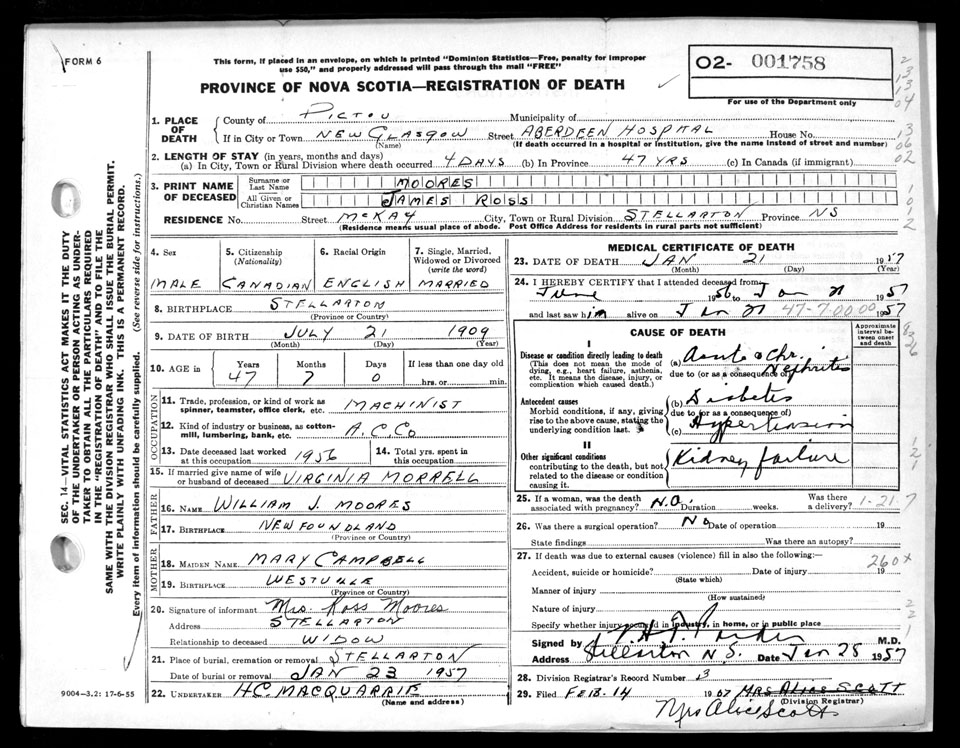 FORM 6
This form, if placed in an envelope, on which is printed "Dominion Statistics—Free, penalty for improper
use $50," and properly addressed will pass through the mail "FREE"
O2- 001758
For use of the Department only
PROVINCE OF NOVA SCOTIA—REGISTRATION OF DEATH
1. PLACE OF DEATH
County of PICTOU Municipality of
If in City or Town NEW GLASGOW Street ABERDEEN HOSPITAL House No.
(Name) (If death occurred in a hospital or institution, give the name instead of street and number)
2. LENGTH OF STAY (in years, months and days)
(a) In City, Town or Rural Division where death occurred 4 DAYS (b) In Province 47 YRS (c) In Canada (if immigrant)
3. PRINT NAME OF DECEASED
Surname or Last Name MOORES
All Given or Christian Names JAMES ROSS
RESIDENCE No. Street MCKAY City, Town or Rural Division STELLARTON Province NS
(Residence means usual place of abode. Post Office Address for residents in rural parts not sufficient)
4. Sex MALE
5. Citizenship (Nationality) CANADIAN
6. Racial Origin ENGLISH
7. Single, Married, Widowed or Divorced (write the word) MARRIED
8. BIRTHPLACE STELLARTON
(Province or Country)
9. DATE OF BIRTH JULY 21 1909
(Month) (Day) (Year)
10. AGE in Years 47 Months 7 Days 0 If less than one day old hrs. or min.
OCCUPATION
11. Trade, profession, or kind of work as
spinner, teamster, office clerk, etc. MACHINIST
12. Kind of industry or business, as cotton-
mill, lumbering, bank, etc. A.C.Co
13. Date deceased last worked
at this occupation 1956
14. Total yrs. spent in
this occupation
15. If married give name of wife
or husband of deceased VIRGINIA MORRELL
FATHER
16. NAME WILLIAM J. MOORES
17. BIRTHPLACE NEWFOUNDLAND
(Province or Country)
MOTHER
18. MAIDEN NAME MARY CAMPBELL
19. BIRTHPLACE WESTVILLE
(Province or Country)
20. Signature of informant Mrs. Ross Moores
Address STELLARTON
Relationship to deceased WIDOW
21. Place of burial, cremation or removal STELLARTON
Date of burial or removal JAN 23 1957
22. UNDERTAKER H.C. MACQUARRIE
(Name and address)
MEDICAL CERTIFICATE OF DEATH
23. DATE OF DEATH JAN 21 1957
(Month) (Day) (Year)
24. I HEREBY CERTIFY that I attended deceased from
June 1956 to Jan 21 1957
and last saw him alive on Jan 21 1957
47-7.00.00
CAUSE OF DEATH
Approximate interval between onset and death
I
Disease or condition directly leading to death
(This does not mean the mode of
dying, e.g., heart failure, asthenia,
etc. It means the disease, injury, or
complication which caused death.)
(a) Acute & Chr. Nephritis
due to (or as a consequence of)
Antecedent causes
Morbid conditions, if any, giving
rise to the above cause, stating the
underlying condition last.
(b) Diabetes
due to (or as a consequence of)
(c) Hypertension
II
Other significant conditions
contributing to the death, but not
related to the disease or condition
causing it.
Kidney failure
25. If a woman, was the death
associated with pregnancy? N.O. Duration weeks. Was there
a delivery? 1-21-7
26. Was there a surgical operation? No Date of operation 19
State findings Was there an autopsy?
27. If death was due to external causes (violence) fill in also the following:
260x
Accident, suicide or homicide? Date of injury 19
(State which)
Manner of injury
(How sustained)
Nature of injury
Specify whether injury occurred in industry, in home, or in public place
Signed by Parker M.D.
Address Stellarton N.S. Date Jan 28 1957
28. Division Registrar's Record Number 3
29. Filed FEB. 14 1957 MRS ALICE SCOTT
(Division Registrar)
Mrs Alice Scott
9004—3.2: 17-6-55
SEC. 14—VITAL STATISTICS ACT MAKES IT THE DUTY
OF THE UNDERTAKER OR PERSON ACTING AS UNDER-
TAKER TO OBTAIN ALL THE PARTICULARS REQUIRED
IN THE "REGISTRATION OF DEATH" AND TO FILE THE
SAME WITH THE DIVISION REGISTRAR WHO SHALL ISSUE THE BURIAL PERMIT.
WRITE PLAINLY WITH UNFADING INK. THIS IS A PERMANENT RECORD.
Every item of information should be carefully supplied. (See reverse side for instructions.)